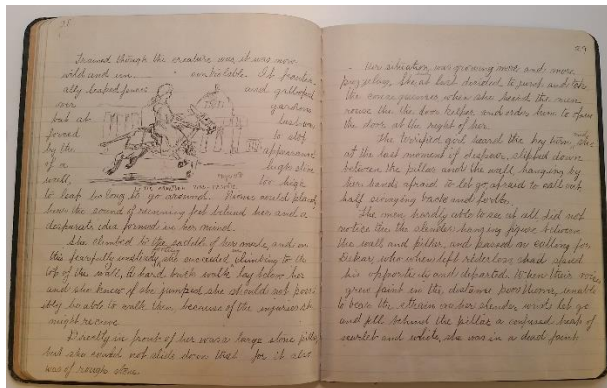 28
Trained though the creature was, it was now
wild and un controlable. It frantic-
ally leaped fences and galloped
over gardens
but at last was
forced to stop
by the appearance
of a high stone
wall, too huge
to leap
how the sound of running feet behind her and a
desperate idea formed in her mind.
She climbed to the saddle of her mount, and on
this fearfully unsteady, she succeeded climbing to the
top of the wall, A hard brick walk lay below her
and she knew if she jumped she should not possi
bly be able to walk then, because of the injuries she
might receive.
Directly in front of her was a large stone pillar
but she could not slide down that for it also
was of rough stone.
29
Her situation, was growing more and more
perplexing. She at last decided to jump and take
the consequences when she heard the men
rouse the the door keeper and order him to open
the door at the right of her.
The terrified girl heard the key turn, she
at the last moment of despair, slipped down
between the pillar and the wall, hanging by
her hands afraid to let go, afraid to call out
half swinging back and forth.
The men hardly able to see at all did not
notice the the slender hanging figure between
the wall and pillar, and passed on calling for
who when left riderless had
his opportunity and departed. When their voices
grew faint in the distance unable
to bear the strain on her slender wrists let go
and fell behind the pillar a confused heap of
scarlet and white, she was in a dead faint